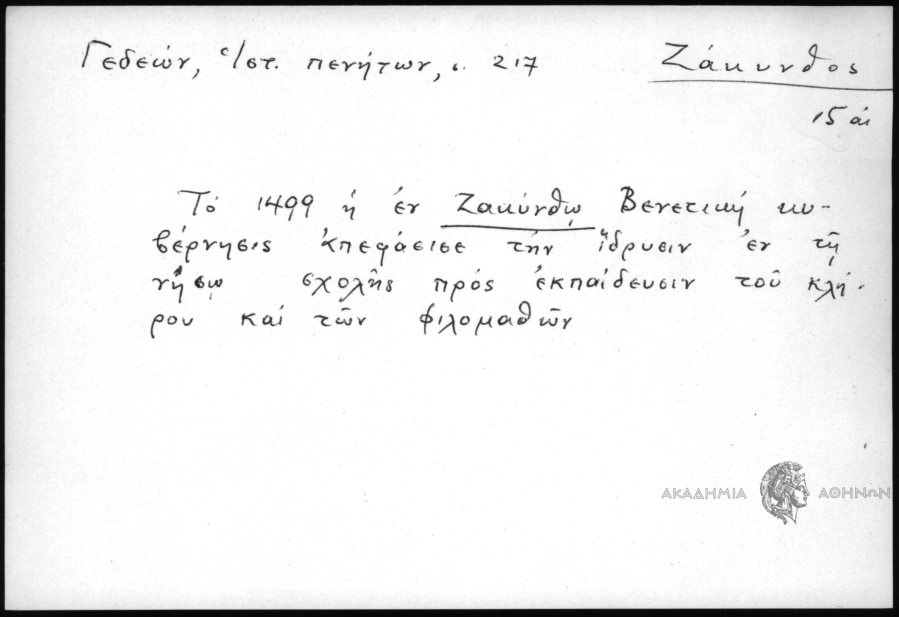 Γεδεών, Ἱστ. πενήτων, σ. 217
Ζάκυνθος
15 αἰ
Τό 1499 ἡ ἐν Ζακύνθῳ Βενετική κυ-
βέρνησις ἀπεφάσισε τήν ἵδρυσιν ἐν τῇ
νήσῳ σχολῆς πρός ἐκπαίδευσιν τοῦ κλή-
ρου καί τῶν φιλομαθῶν
ΑΚΑΔΗΜΙΑ ΑΘΗΝΩΝ